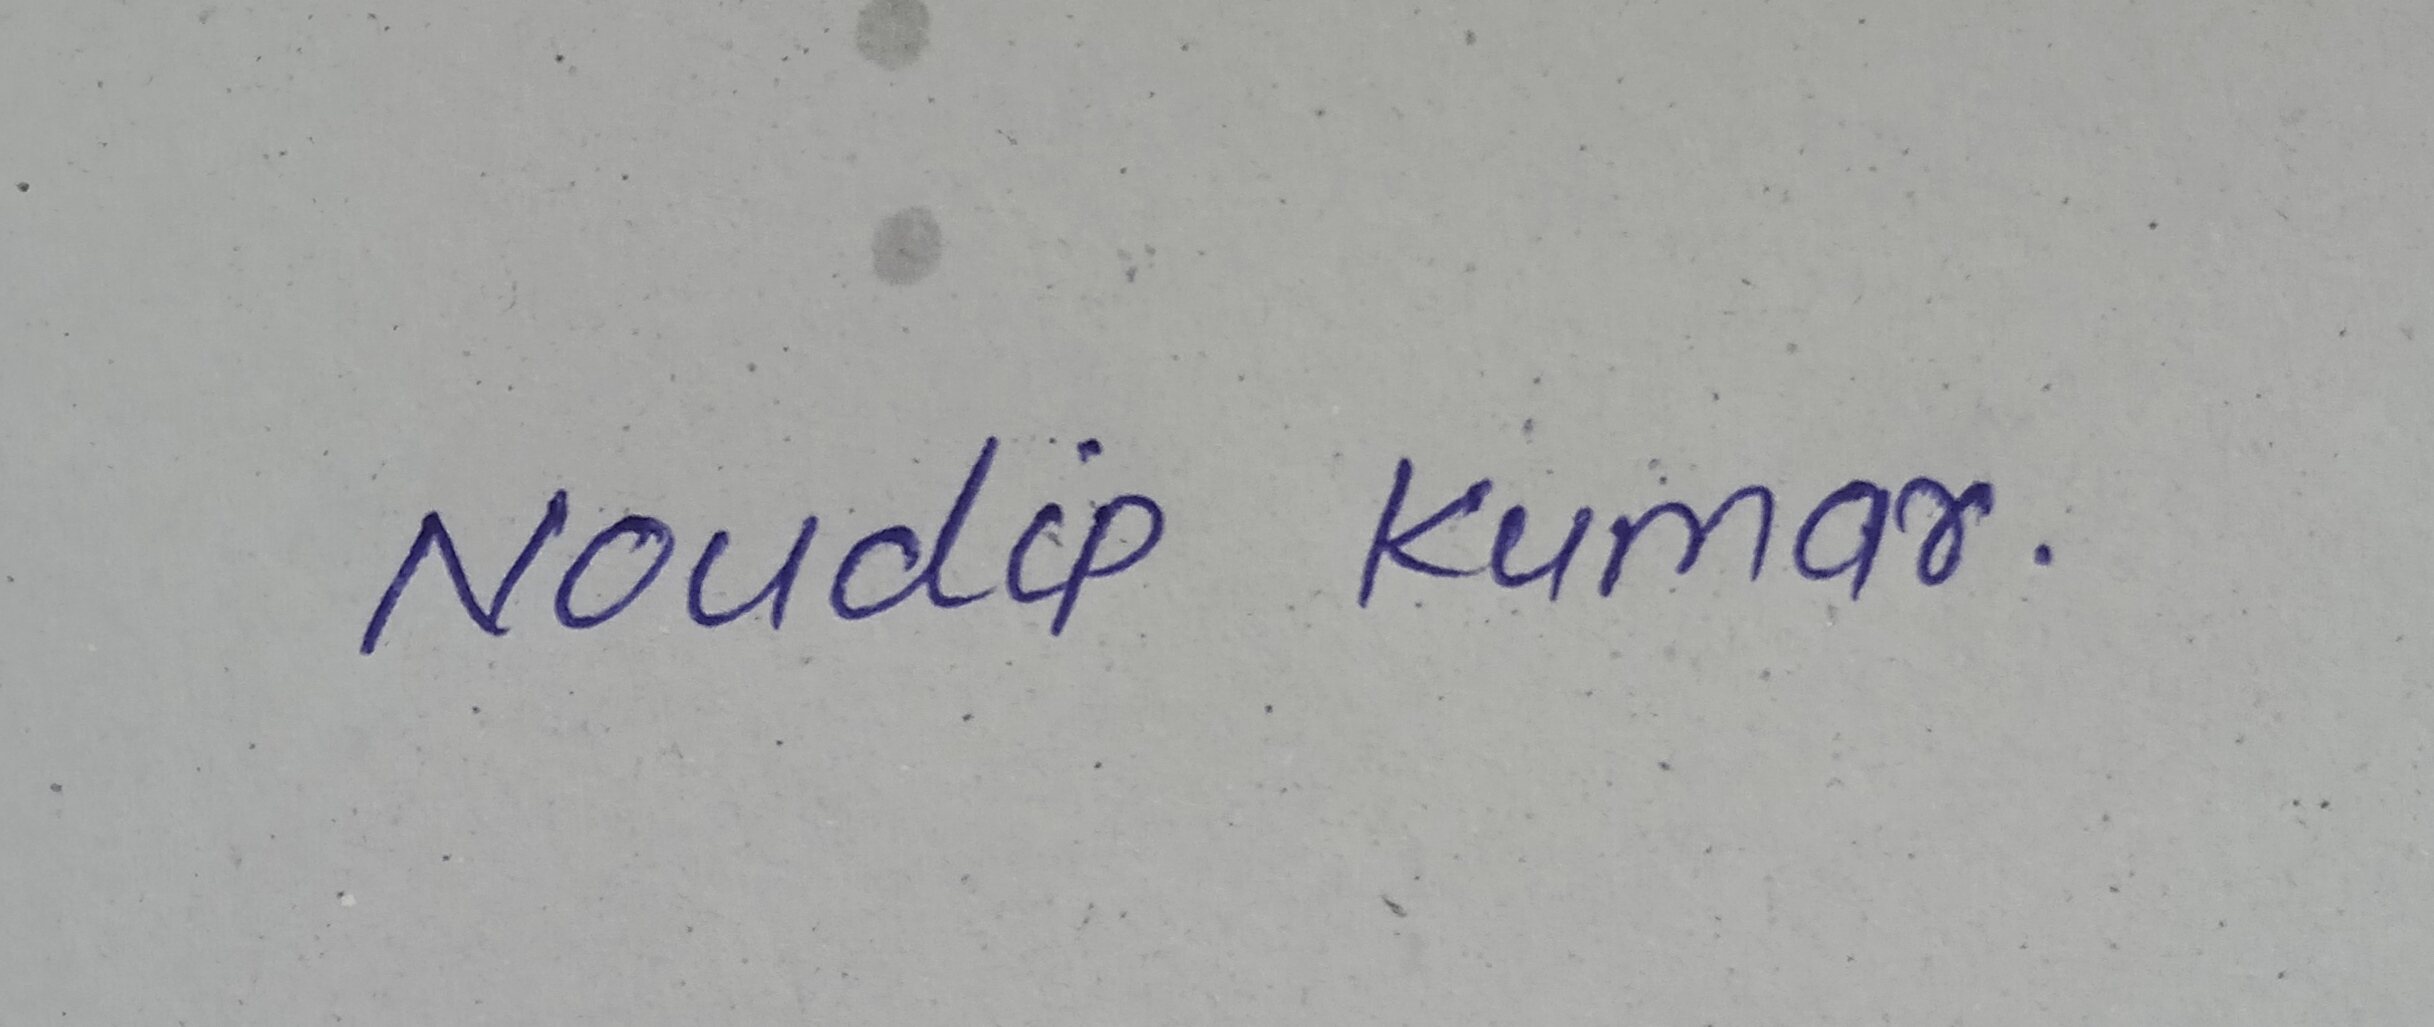 Noudip Kumar.